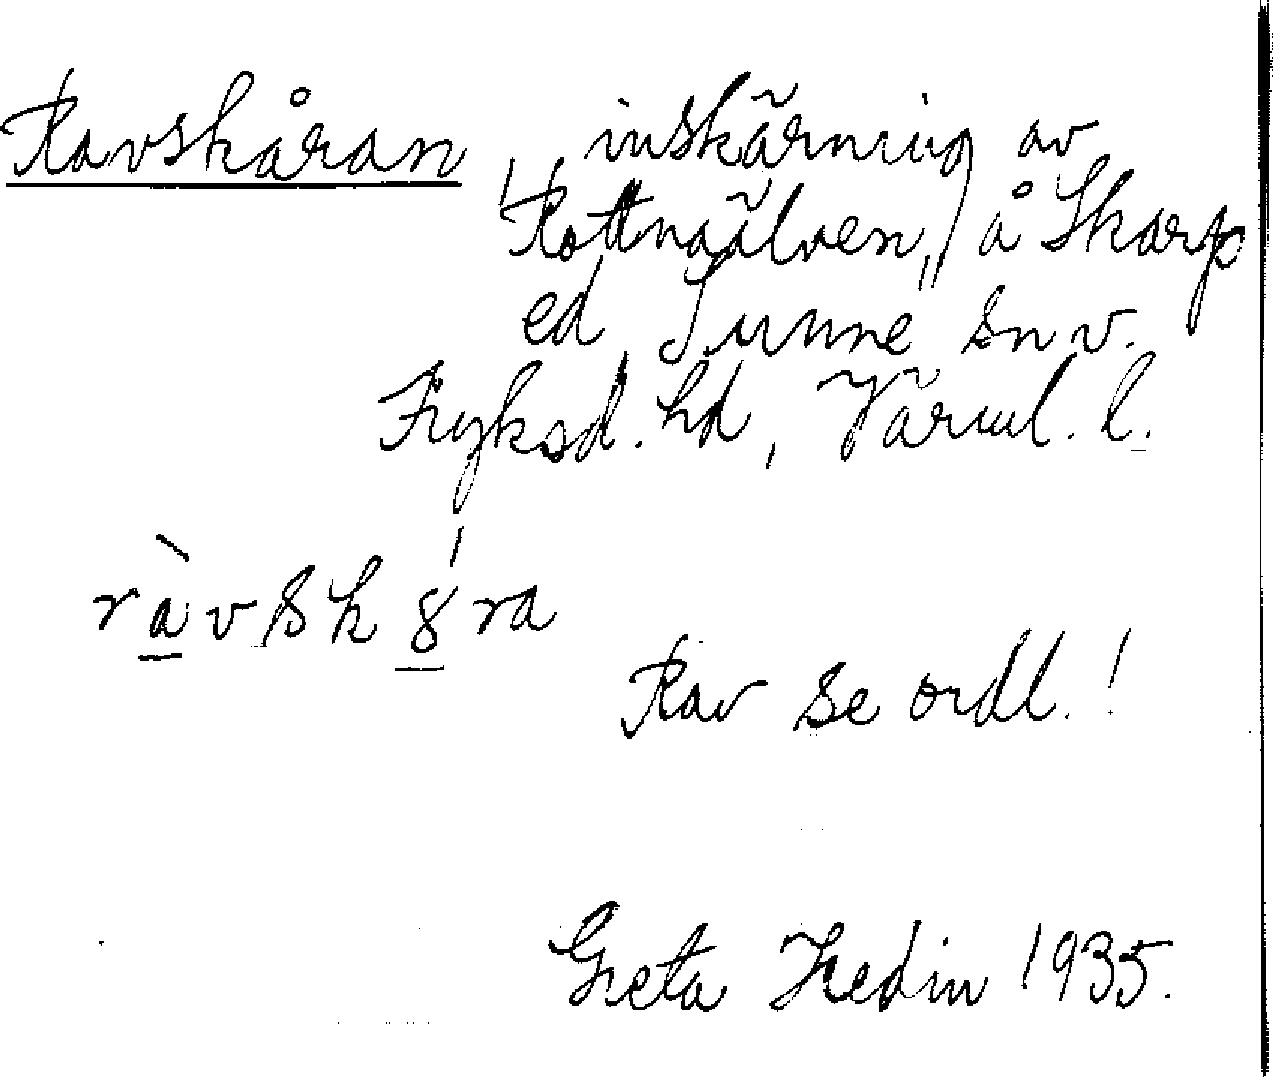 Ravskåran, inskärning av
Rottnaälven, å Skarp
ed Sunne sn v.
Fryksd. hd, Värml. l.
ràvsk8́ra
Rav se ordl.!
Greta Hedin 1935.